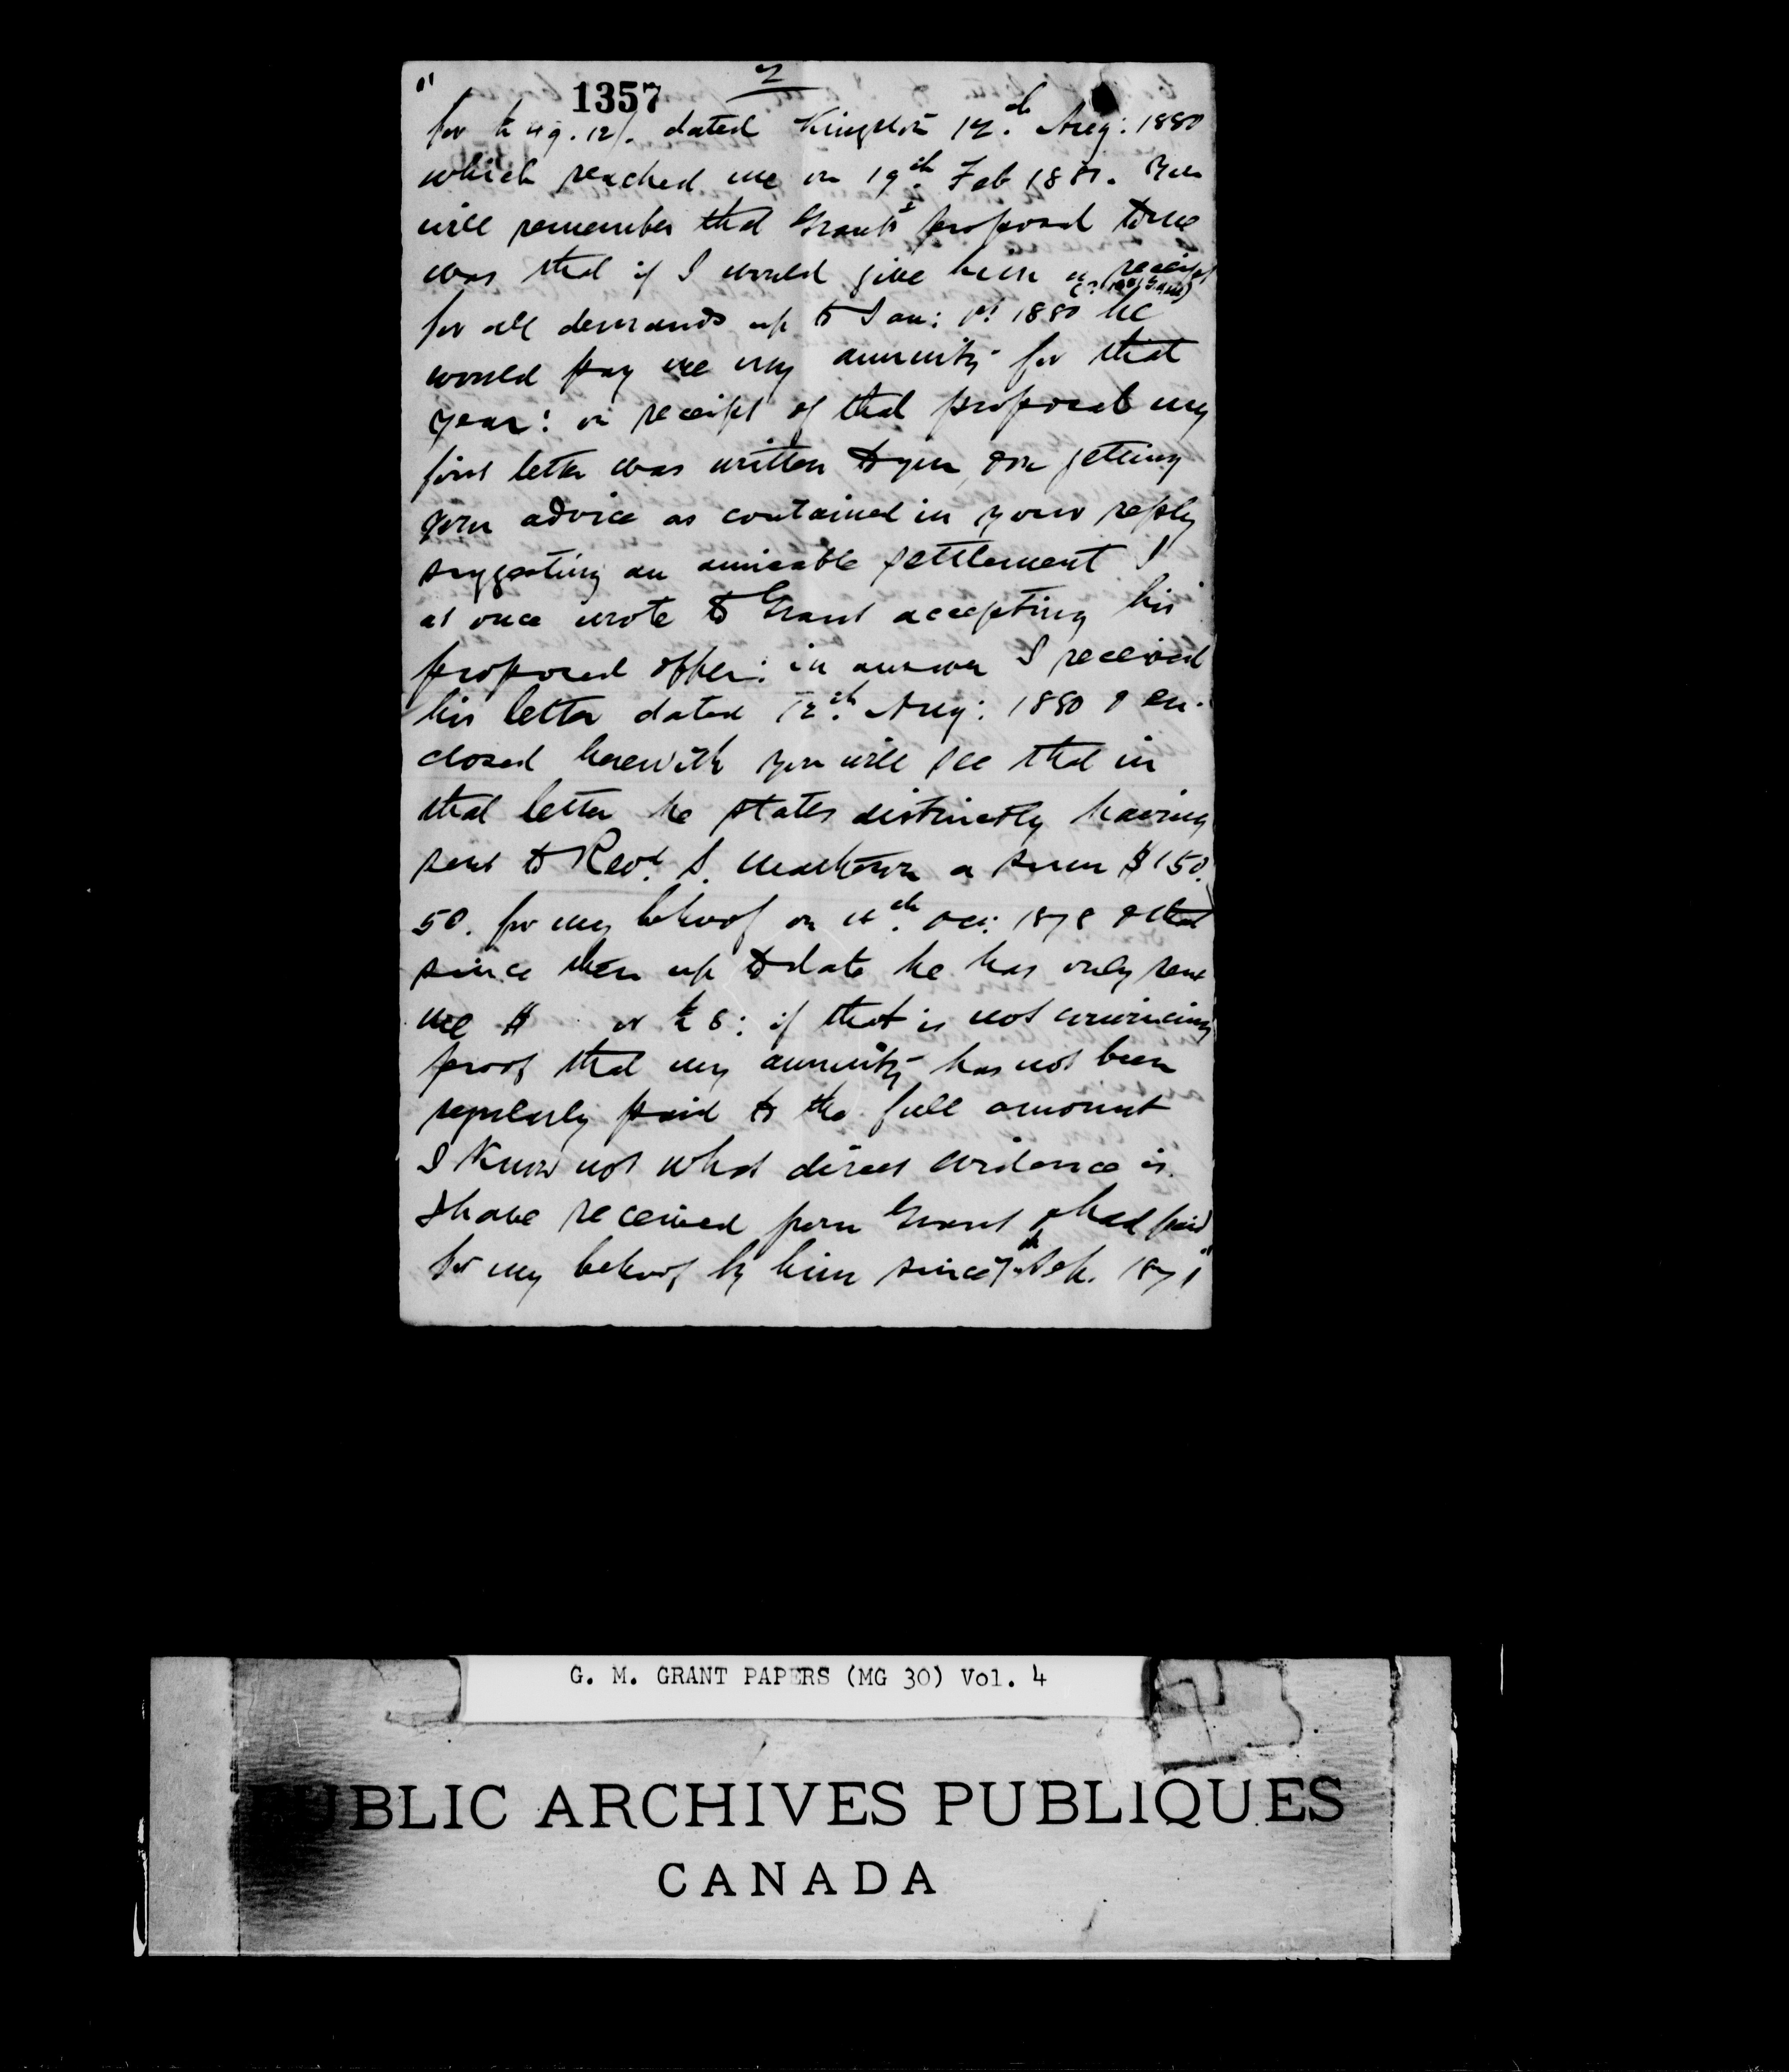 "
1357
2
for £49.12/. dated Kingston 12.th Aug: 1880
which reached me on 19th Feb 1881. You
will remember that Grant's proposal to me
was that if I would give him a receipt
for all demands up to Jan: 1st 1880 he
would pay me my annuity for that
year: on receipt of that proposal my
first letter was written to you, & on getting
your advice as contained in your reply
suggesting an amicable settlement I
at once wrote to Grant accepting his
proposed offer: in answer I received
his letter dated 12th. Aug: 1880 & en-
closed herewith you will see that in
that letter he states distinctly having
sent to Revd. S. a sum $150.
50. for my behoof on th. 1878 & that
since then up to date he has only sent
me $ or £8: if that is not convincing
proof that my annuity has not been
regularly paid to the full amount
I know not what direct evidence is.
I have received from Grant & had paid
for my behoof by him since 7th 1871"
G. M. GRANT PAPERS (MG 30) Vol. 4
PUBLIC ARCHIVES PUBLIQUES
CANADA